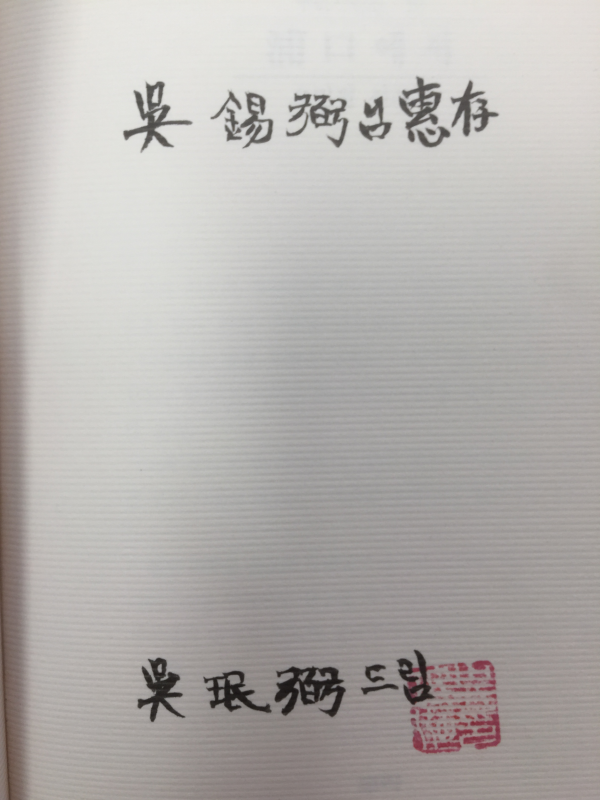 吳錫弼님惠存
吳珉弼드림